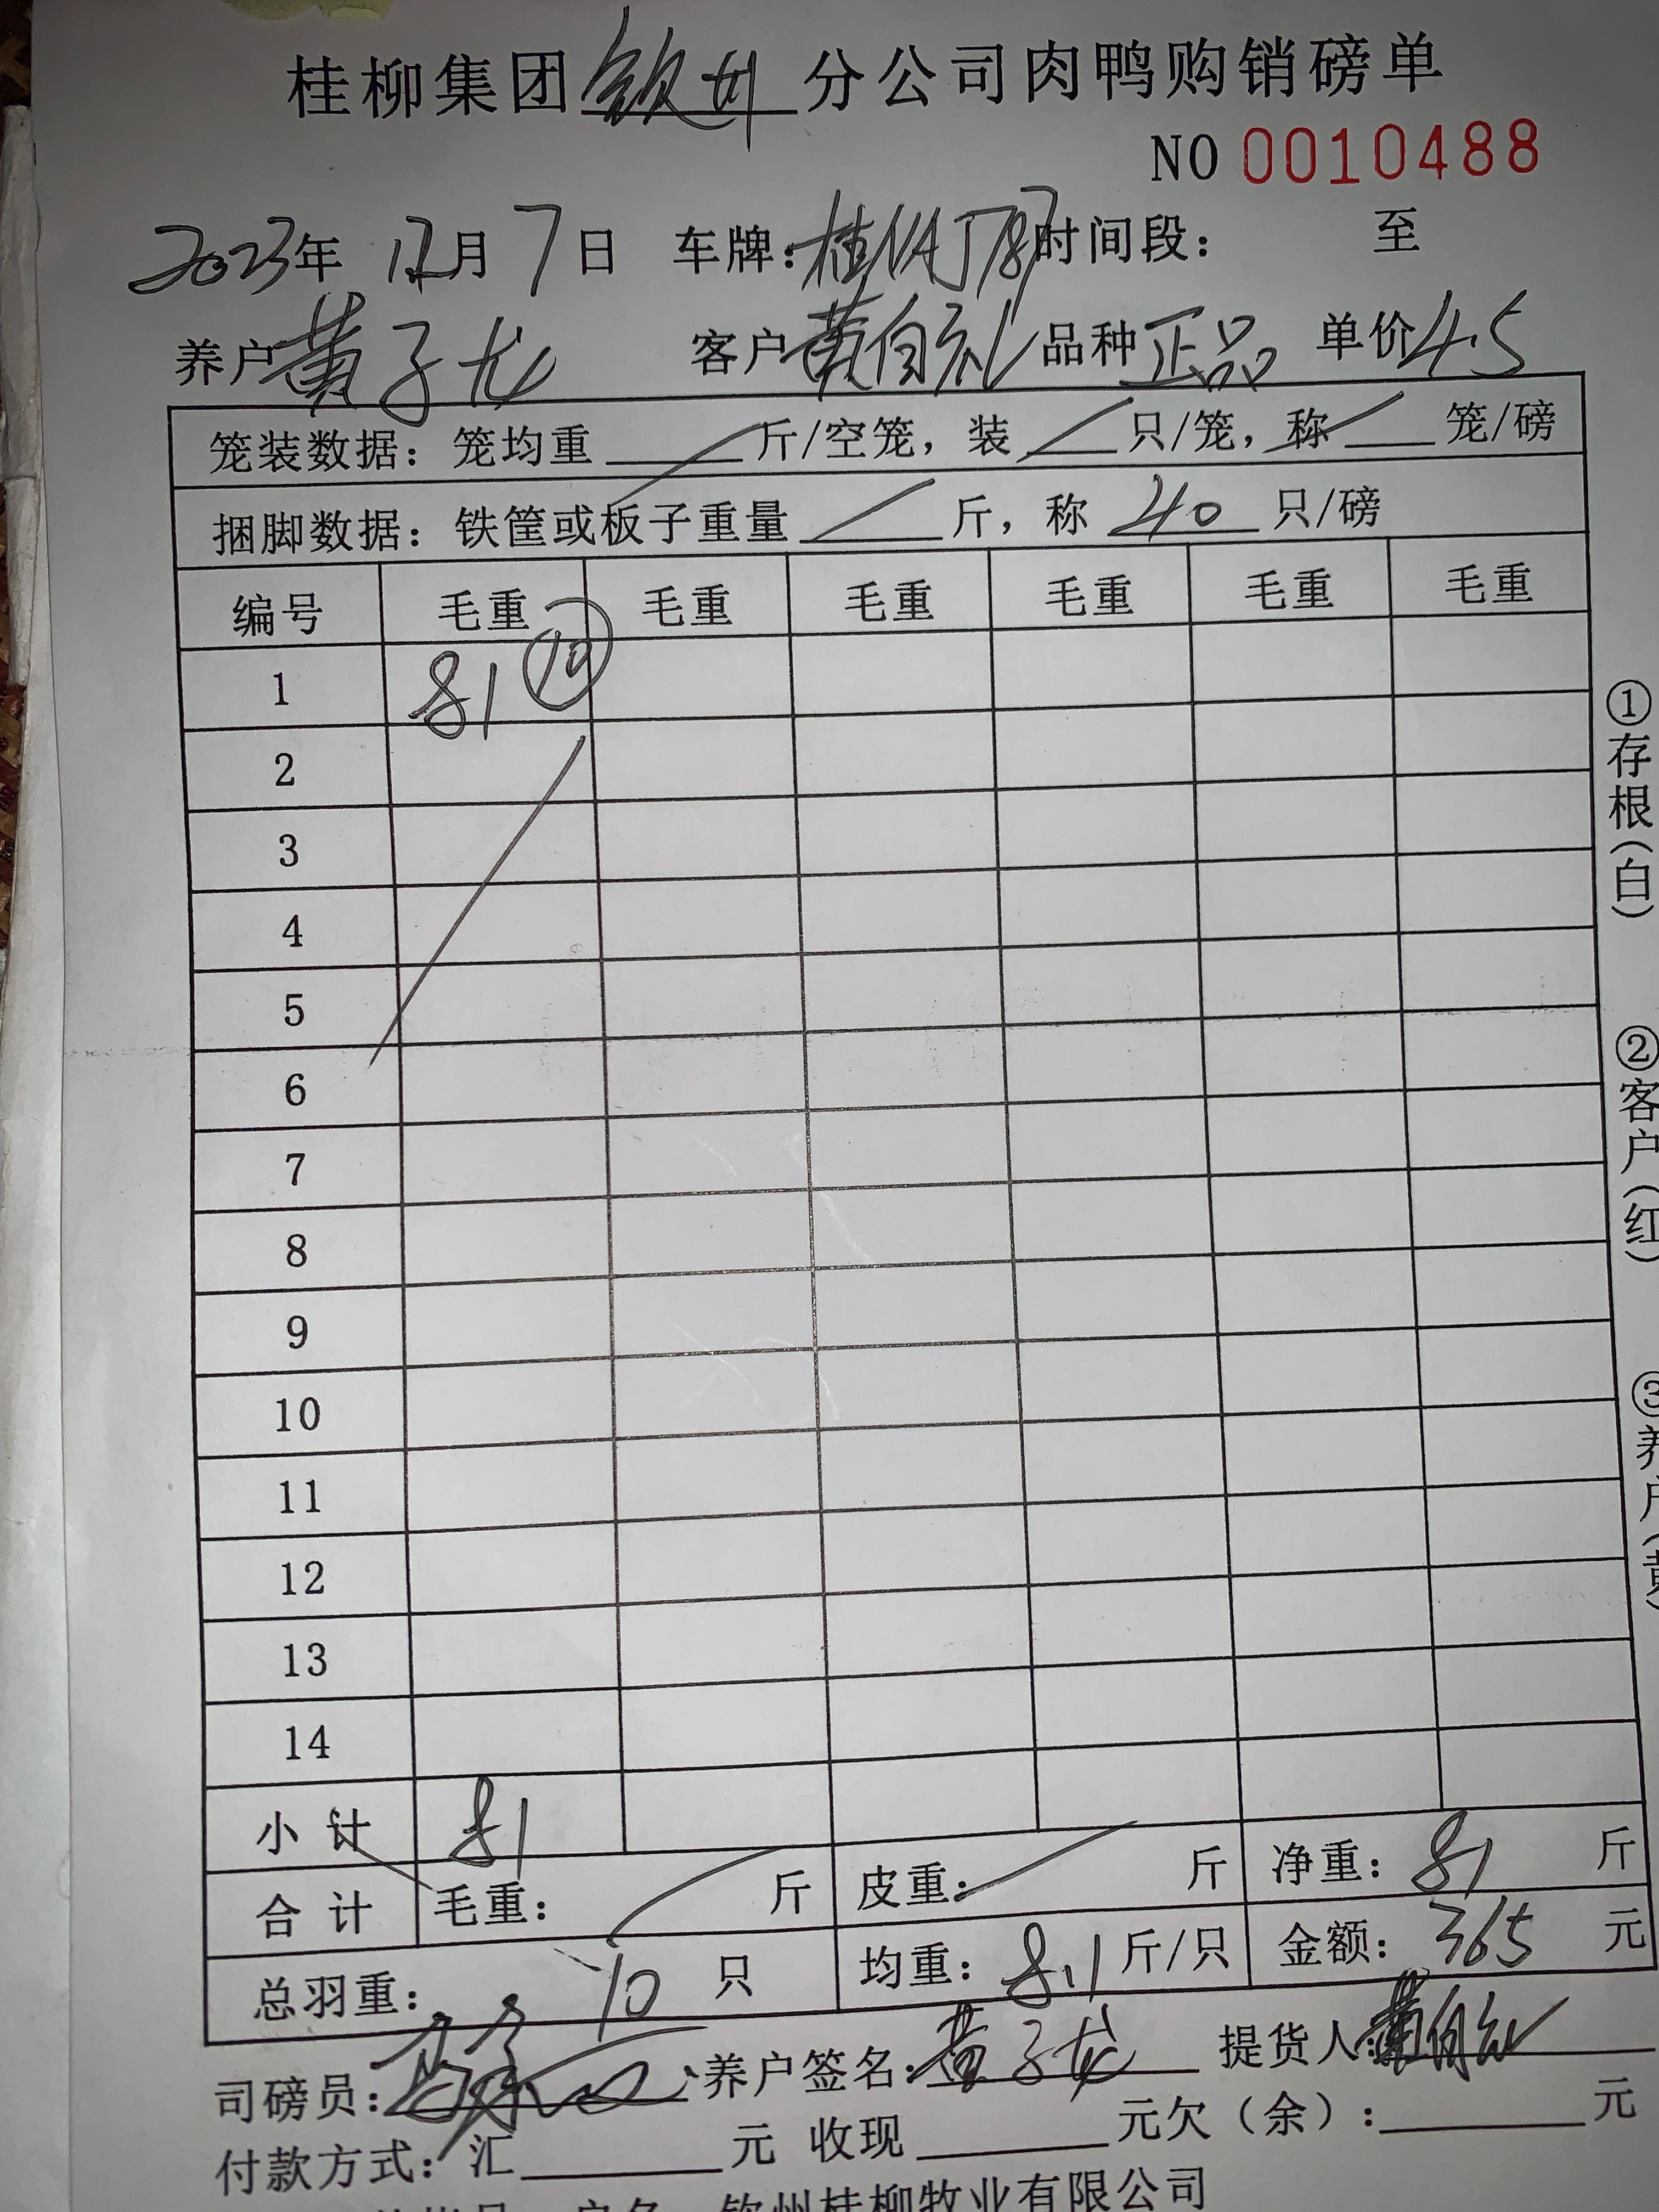 桂柳集团钦州分公司肉鸭购销磅单
NO 0010488
2023年 12月 7日 车牌: 时间段: 至
养户 黄子龙 客户 黄自礼 品种 正品 单价 4.5
笼装数据: 笼均重 斤/空笼, 装 只/笼, 称 笼/磅
捆脚数据: 铁筐或板子重量 斤, 称 40 只/磅
编号 毛重 毛重 毛重 毛重 毛重 毛重
1 81 ⑩
2
3
4
5
6
7
8
9
10
11
12
13
14
小计 81
合计 毛重: 斤 皮重: 斤 净重: 81 斤
总羽重: 10 只 均重: 8.1 斤/只 金额: 365 元
司磅员: 养户签名: 黄子龙 提货人: 黄自礼
付款方式: 汇 元 收现 元欠(余): 元
户名 钦州桂柳牧业有限公司
①存根(白)
②客户(红)
③养户(黄)